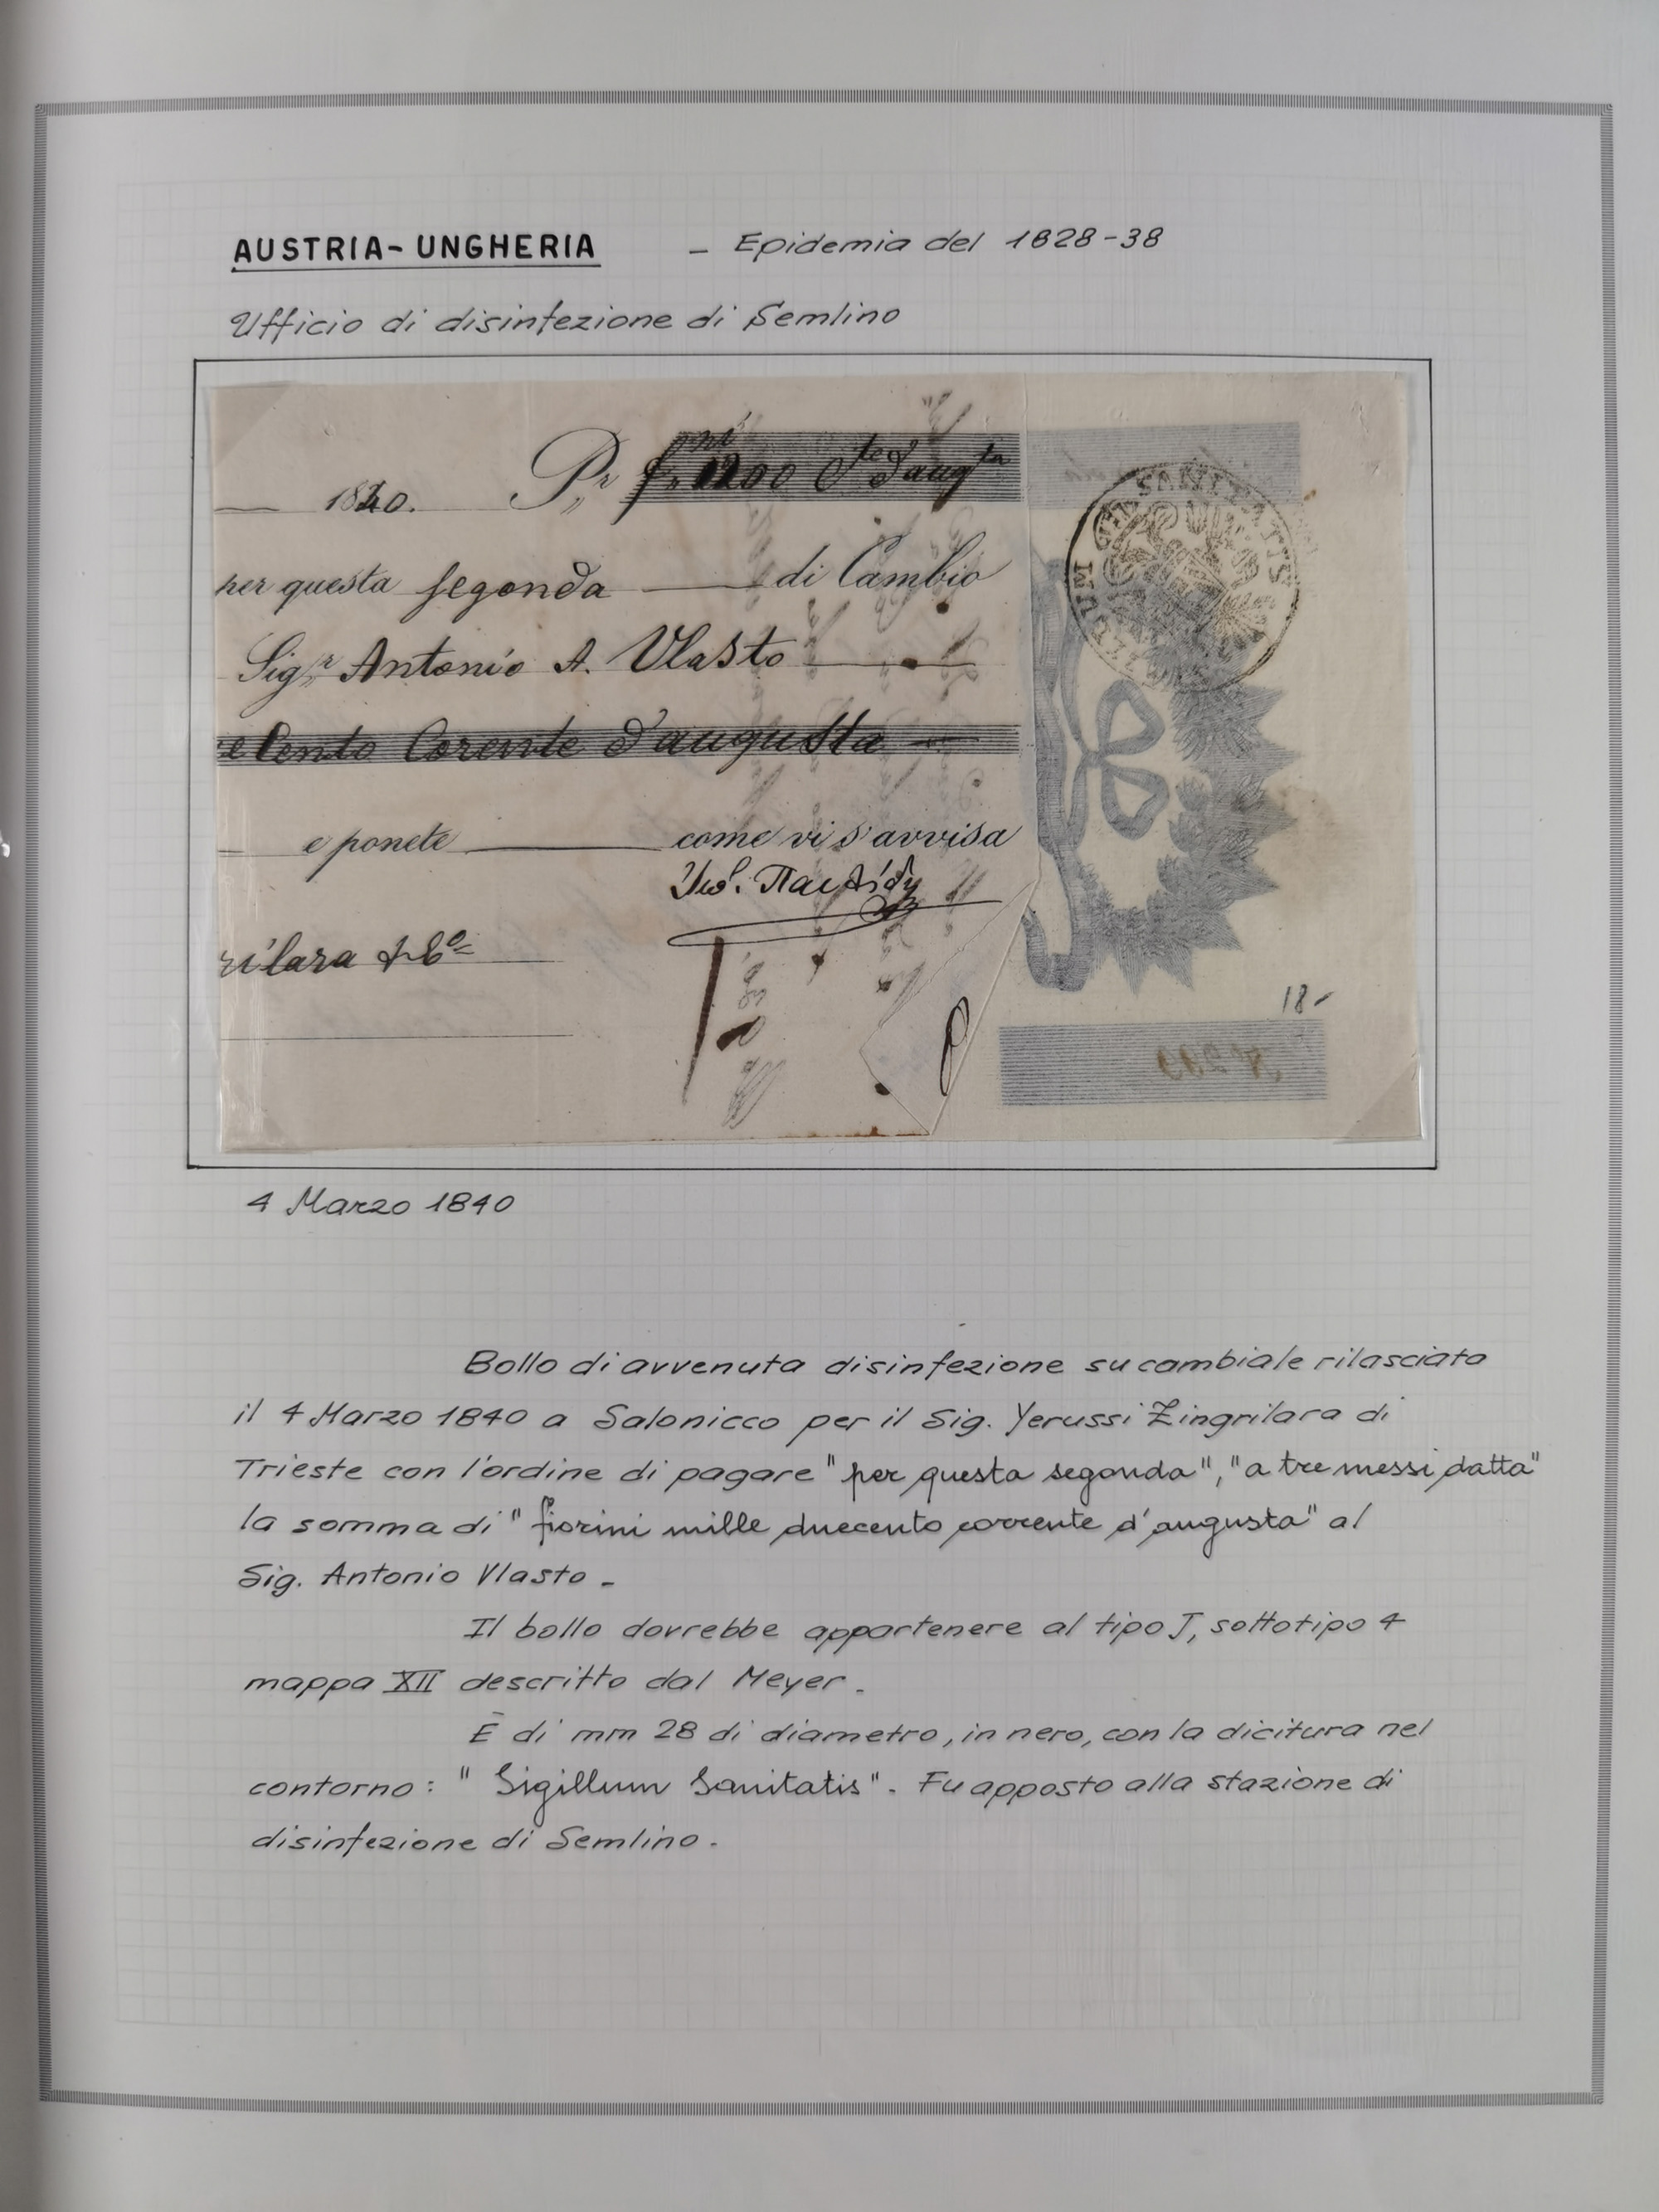 AUSTRIA-UNGHERIA - Epidemia del 1828-38
Ufficio di disinfezione di Semlino
1840. Pr f.ni 1200 Cte d'augta
per questa segonda di Cambio
Sigr Antonio A. Vlasto
e Cento Corente d'augusta
e ponete come vi s'avvisa
rilara & Co
SIGILLUM SANITATIS
18-
4 Marzo 1840
Bollo di avvenuta disinfezione su cambiale rilasciato
il 4 Marzo 1840 a Salonicco per il Sig. Yerussi Zingrilara di
Trieste con l'ordine di pagare "per questa segonda", "a tre messi datta"
la somma di "fiorini mille duecento corrente d'augusta" al
Sig. Antonio Vlasto -
Il bollo dovrebbe appartenere al tipo J, sottotipo 4
mappa XII descritto dal Meyer.
È di mm 28 di diametro, in nero, con la dicitura nel
contorno: "Sigillum Sanitatis". Fu apposto alla stazione di
disinfezione di Semlino.